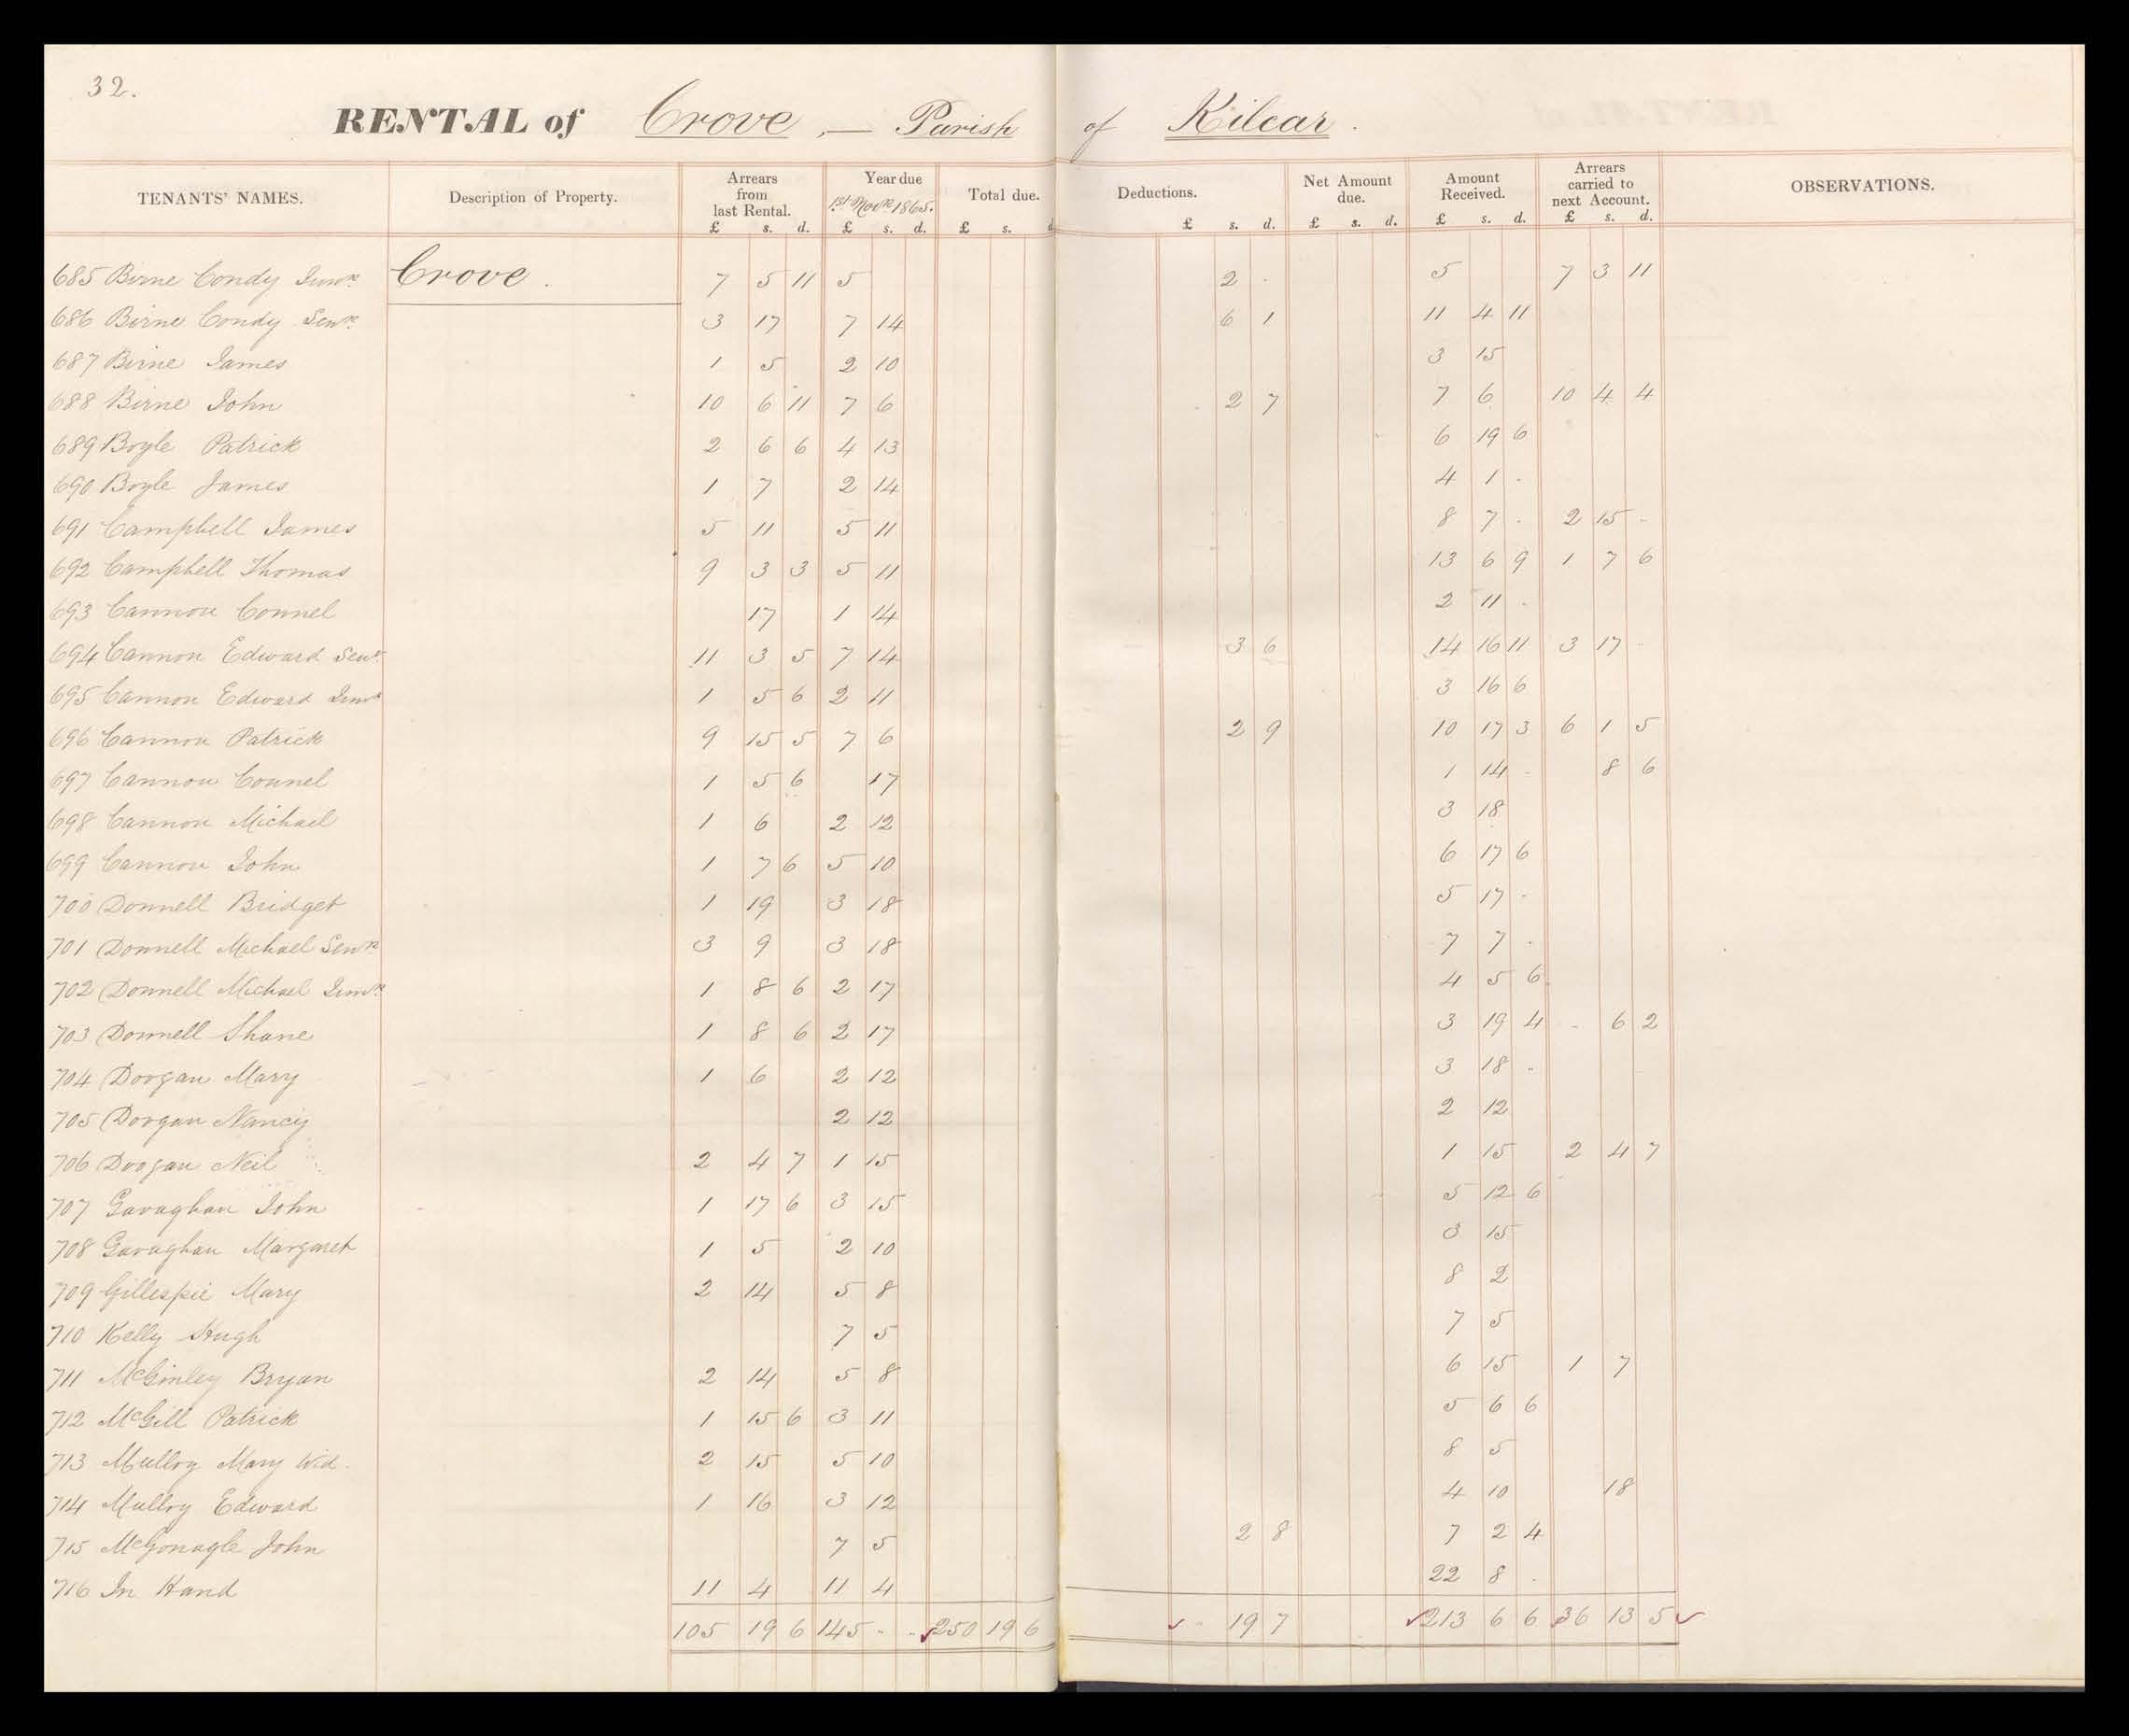 32.
RENTAL of Crove, — Parish of Kilcar.
TENANTS' NAMES. Description of Property. Arrears from last Rental. Year due 1st Novr 1865. Total due. Deductions. Net Amount due. Amount Received. Arrears carried to next Account. OBSERVATIONS.
£ s. d. £ s. d. £ s. d. £ s. d. £ s. d. £ s. d. £ s. d.
685 Birne Condy Junr. Crove. 7 5 11 5 2 - 5 7 3 11
686 Birne Condy Senr. 3 17 7 14 6 1 11 4 11
687 Birne James 1 5 2 10 3 15
688 Birne John 10 6 11 7 6 2 7 7 6 10 4 4
689 Boyle Patrick 2 6 6 4 13 6 19 6
690 Boyle James 1 7 2 14 4 1 -
691 Campbell James 5 11 5 11 8 7 - 2 15 -
692 Campbell Thomas 9 3 3 5 11 13 6 9 1 7 6
693 Cannon Connel 17 1 14 2 11 -
694 Cannon Edward Senr. 11 3 5 7 14 3 6 14 16 11 3 17 -
695 Cannon Edward Junr 1 5 6 2 11 3 16 6
696 Cannon Patrick 9 15 5 7 6 2 9 10 17 3 6 1 5
697 Cannon Connel 1 5 6 17 1 14 - 8 6
698 Cannon Michael 1 6 2 12 3 18
699 Cannon John 1 7 6 5 10 6 17 6
700 Donnell Bridget 1 19 3 18 5 17 -
701 Donnell Michael Senr. 3 9 3 18 7 7 -
702 Donnell Michael Junr. 1 8 6 2 17 4 5 6
703 Donnell Shane 1 8 6 2 17 3 19 4 - 6 2
704 Doogan Mary 1 6 2 12 3 18 -
705 Doogan Nancy 2 12 2 12
706 Doogan Neil 2 4 7 1 15 1 15 2 4 7
707 Gavaghan John 1 17 6 3 15 5 12 6
708 Gavaghan Margaret 1 5 2 10 3 15
709 Gillespie Mary 2 14 5 8 8 2
710 Kelly Hugh 7 5 7 5
711 McGinley Bryan 2 14 5 8 6 15 1 7
712 McGill Patrick 1 15 6 3 11 5 6 6
713 Mulloy Mary Wid. 2 15 5 10 8 5
714 Mulloy Edward 1 16 3 12 4 10 18
715 McGonagle John 7 5 2 8 7 2 4
716 In Hand 11 4 11 4 22 8 -
105 19 6 145 - - ✓250 19 6 ✓ - 19 7 ✓213 6 6 36 13 5 ✓